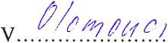 V Olomouci